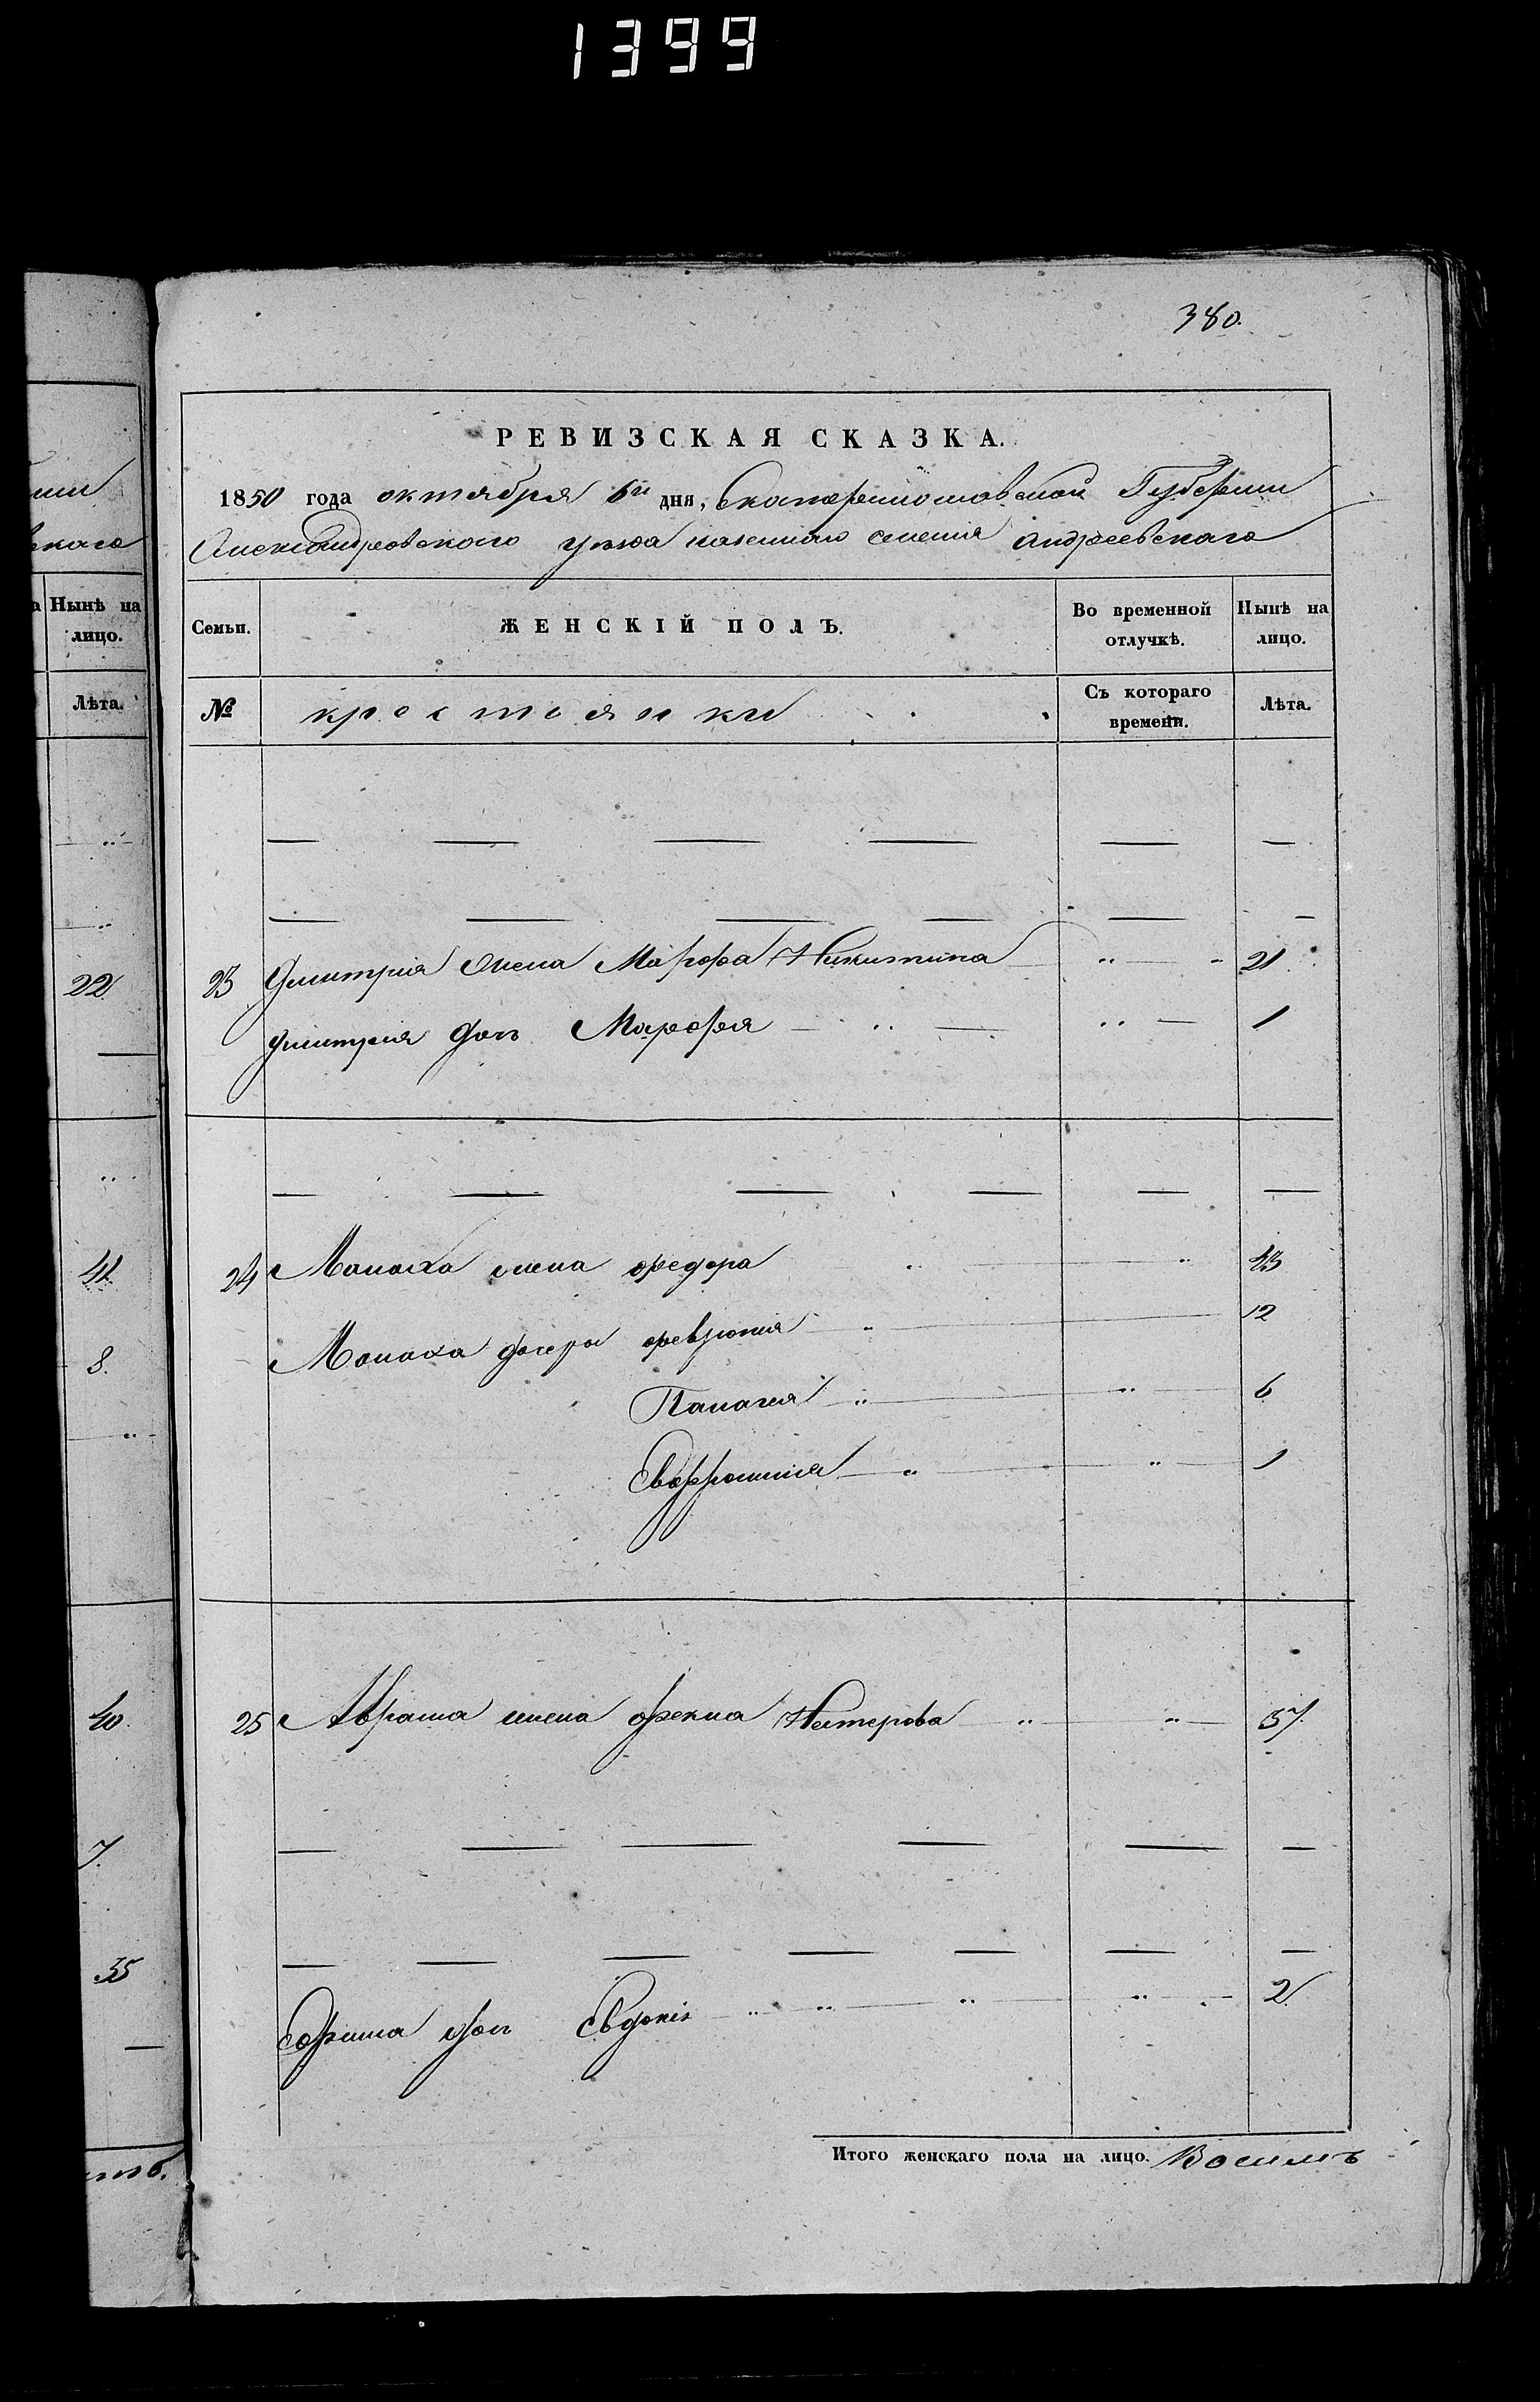 1399
380.
РЕВИЗСКАЯ СКАЗКА.
1850 года октября 6й дня, Екатеринославской Губернии
Александровского уезда казенного селения Андреевскаго
Нынѣ на
лицо.
Лѣта.
22
41
8.
40.
7.
35
Семьи. ЖЕНСКІЙ ПОЛЪ. Во временной отлучкѣ. Нынѣ на лицо.
№ крестьянки Съ котораго времени. Лѣта.
23 Дмитрия жена Марфа Никитина " " 21
Дмитрия доч Марфа " " 1
24 Монаха жена Федора " " 43
Монаха дочери Феврония " 12
Панагия " " 6
Евфросиния " " 1
25 Абрама жена Фекла Нестерова " " 37
Ефима доч Евдокія " " " " 2
Итого женскаго пола на лицо. Восимъ